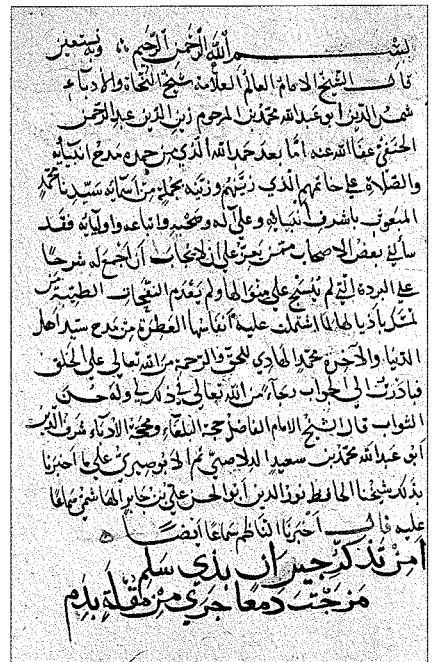 بسم الله الرحمن الرحيم وبه نستعين
قال الشيخ الامام العالم العلامة شيخ النحاة والادباء
شمس الدين ابو عبد الله محمد بن المرحوم زين الدين عبد الرحمن
الحنفي عفا الله عنه اما بعد حمد الله الذي من حمده مدح انبيائه
والصلاة على خاتمهم الذي زينهم وزينه بجملة من اسمائه سيدنا محمد
المبعوث باشرف انبيائه وعلى آله وصحبه واتباعه واوليائه فقد
سألني بعض الاصحاب ممن يعز علي ان لا يجاب ان اجمع له شرحا
على البردة التي لم ينسج على منوالها ولم يقدم النفحات الطيبة من
تمسك باذيالها لما اشتملت عليه انفاسها العطرة من مدح سيد اهل
الدنيا والآخرة محمد الهادي للحق والرحمة من الله تعالى على الخلق
فبادرت الى الجواب رجاء من الله تعالى في ذلك لي وله حسن
الثواب قال الشيخ الامام الفاضل حجة البلغاء ومحجة الادباء شرف الدين
ابو عبد الله محمد بن سعيد الدلاصي ثم الابوصيري على ما اخبرنا
بذلك شيخنا الحافظ نور الدين ابو الحسن علي بن جابر الهاشمي سماعا
عليه قال اخبرنا الناظم سماعا ايضا
امن تذكر جيران بذي سلم
مزجت دمعا جرى من مقلة بدم